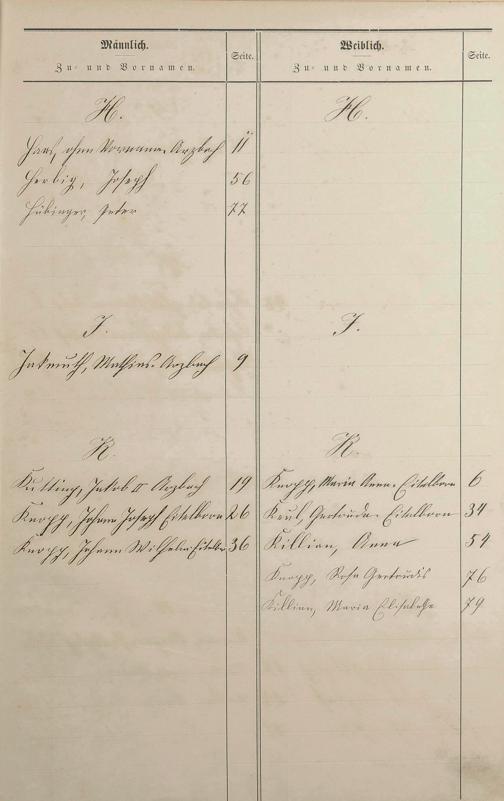 Männlich.
Zu- und Vornamen.
Seite.
H.
Haas, ohne Vorname. Arzbach 11
Herbig, Joseph 56
Hübinger, Peter 77
J.
Jakmuth, Mathias. Arzbach 9
K.
Kutting, Jakob II Arzbach 19
Knopp, Johann Joseph Eitelborn 26
Knopp, Johann Wilhelm Eitelbor 36
Weiblich.
Zu- und Vornamen.
Seite.
H.
J.
K.
Knopp, Maria Anna. Eitelborn 6
Keul, Gertrude. Eitelborn 34
Killian, Anna 54
Knopp, Rosa Gertrudis 76
Killian, Maria Elisabethe 79